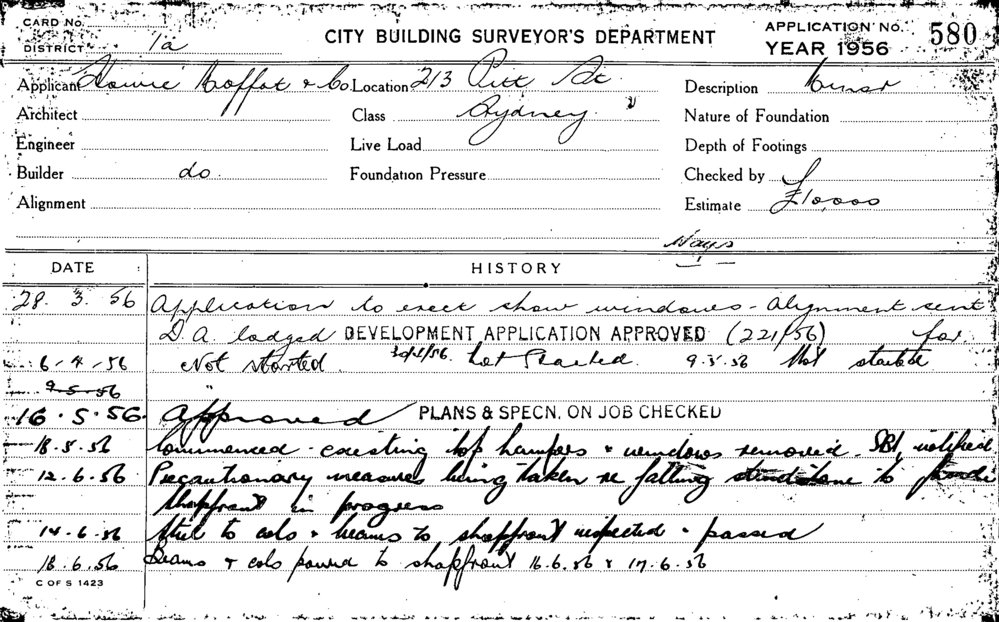 CARD No.
DISTRICT 1a
CITY BUILDING SURVEYOR'S DEPARTMENT
APPLICATION No. 580
YEAR 1956
Applicant Howie Moffat & Co. Location 213 Pitt St. Description Minor
Architect Class Sydney Nature of Foundation
Engineer Live Load Depth of Footings
Builder do. Foundation Pressure Checked by
Alignment Estimate £10,000
Hays
DATE HISTORY
28. 3. 56 Application to erect show windows - alignment sent
D.A. lodged DEVELOPMENT APPLICATION APPROVED (221/56) for
6-4-56 Not started. Not Started. 9.5.56 Not started
9.5.56 "
16.5.56. Approved PLANS & SPECN. ON JOB CHECKED
18.5.56 Commenced - existing top hampers & windows removed. notified
12.6.56 Precautionary measures being taken re falling to
shopfront in progress
14.6.56 Steel to cols & beams to shopfront inspected & passed
18.6.56 Beams & cols poured to shopfront 16.6.56 & 17.6.56
C OF S 1423